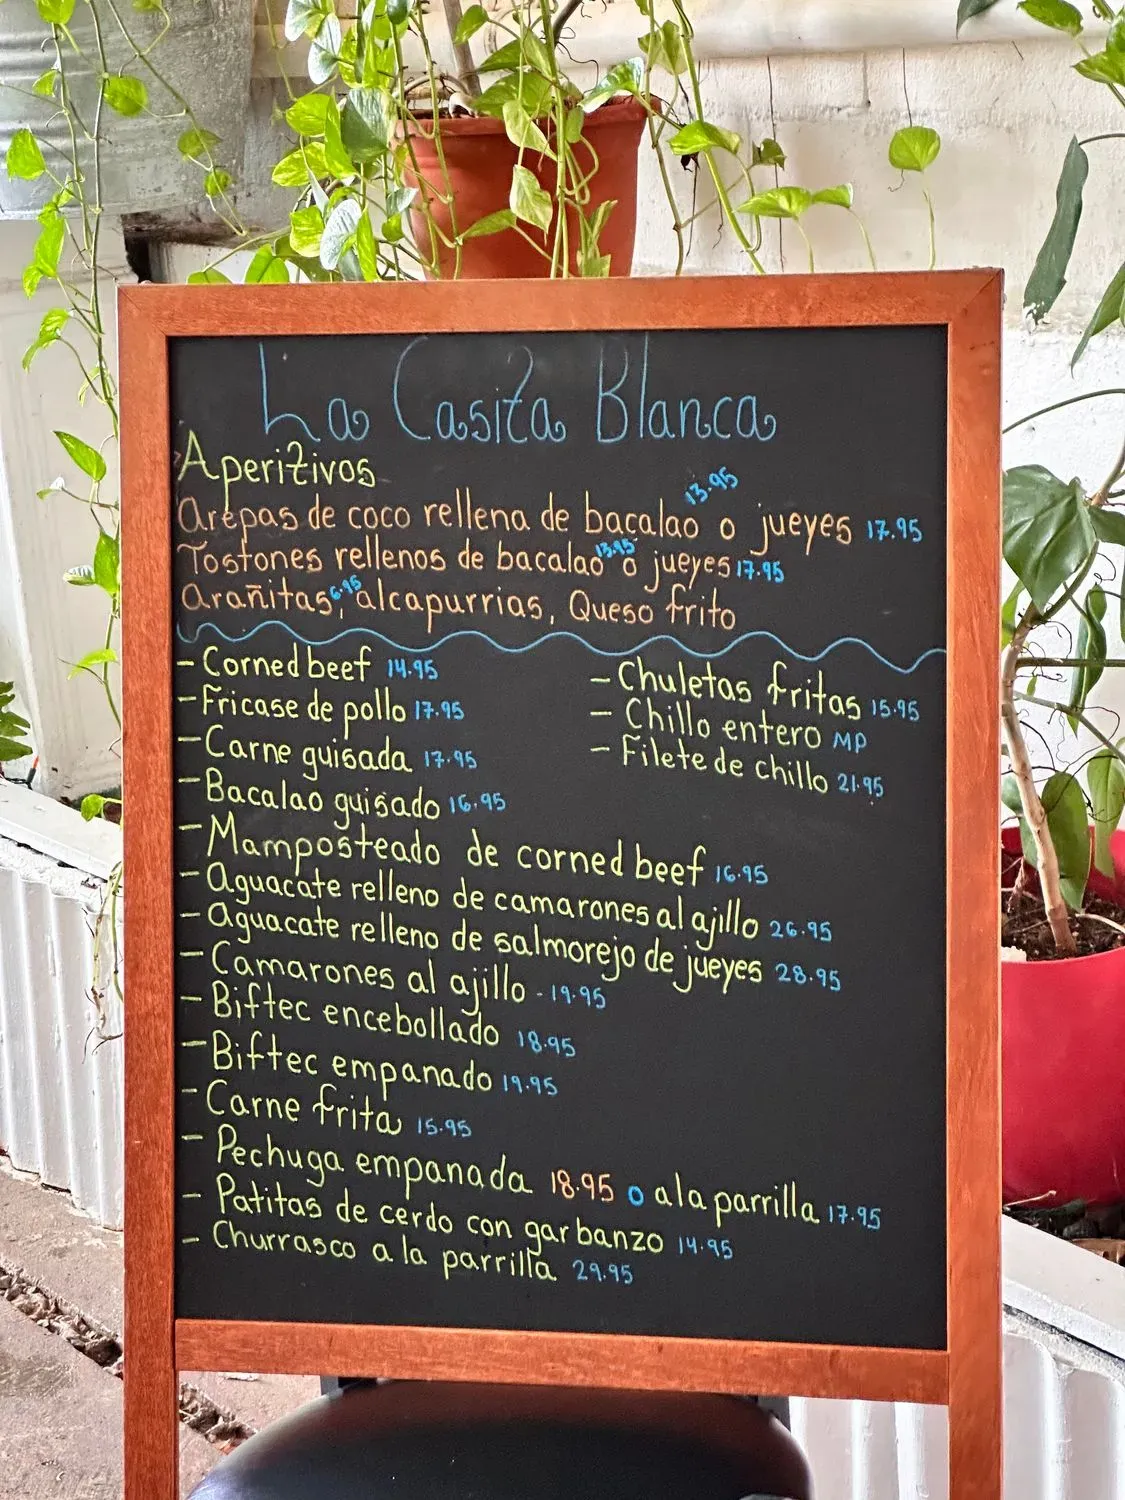 La Casita Blanca
Aperitivos
Arepas de coco rellena de bacalao 13.95 o jueyes 17.95
Tostones rellenos de bacalao 13.95 o jueyes 17.95
Arañitas 6.95, alcapurrias, Queso frito
- Corned beef 14.95
- Fricase de pollo 17.95
- Carne guisada 17.95
- Bacalao guisado 16.95
- Mamposteado de corned beef 16.95
- Aguacate relleno de camarones al ajillo 26.95
- Aguacate relleno de salmorejo de jueyes 28.95
- Camarones al ajillo - 19.95
- Biftec encebollado 18.95
- Biftec empanado 19.95
- Carne frita 15.95
- Pechuga empanada 18.95 o a la parrilla 17.95
- Patitas de cerdo con garbanzo 14.95
- Churrasco a la parrilla 29.95
- Chuletas fritas 15.95
- Chillo entero MP
- Filete de chillo 21.95